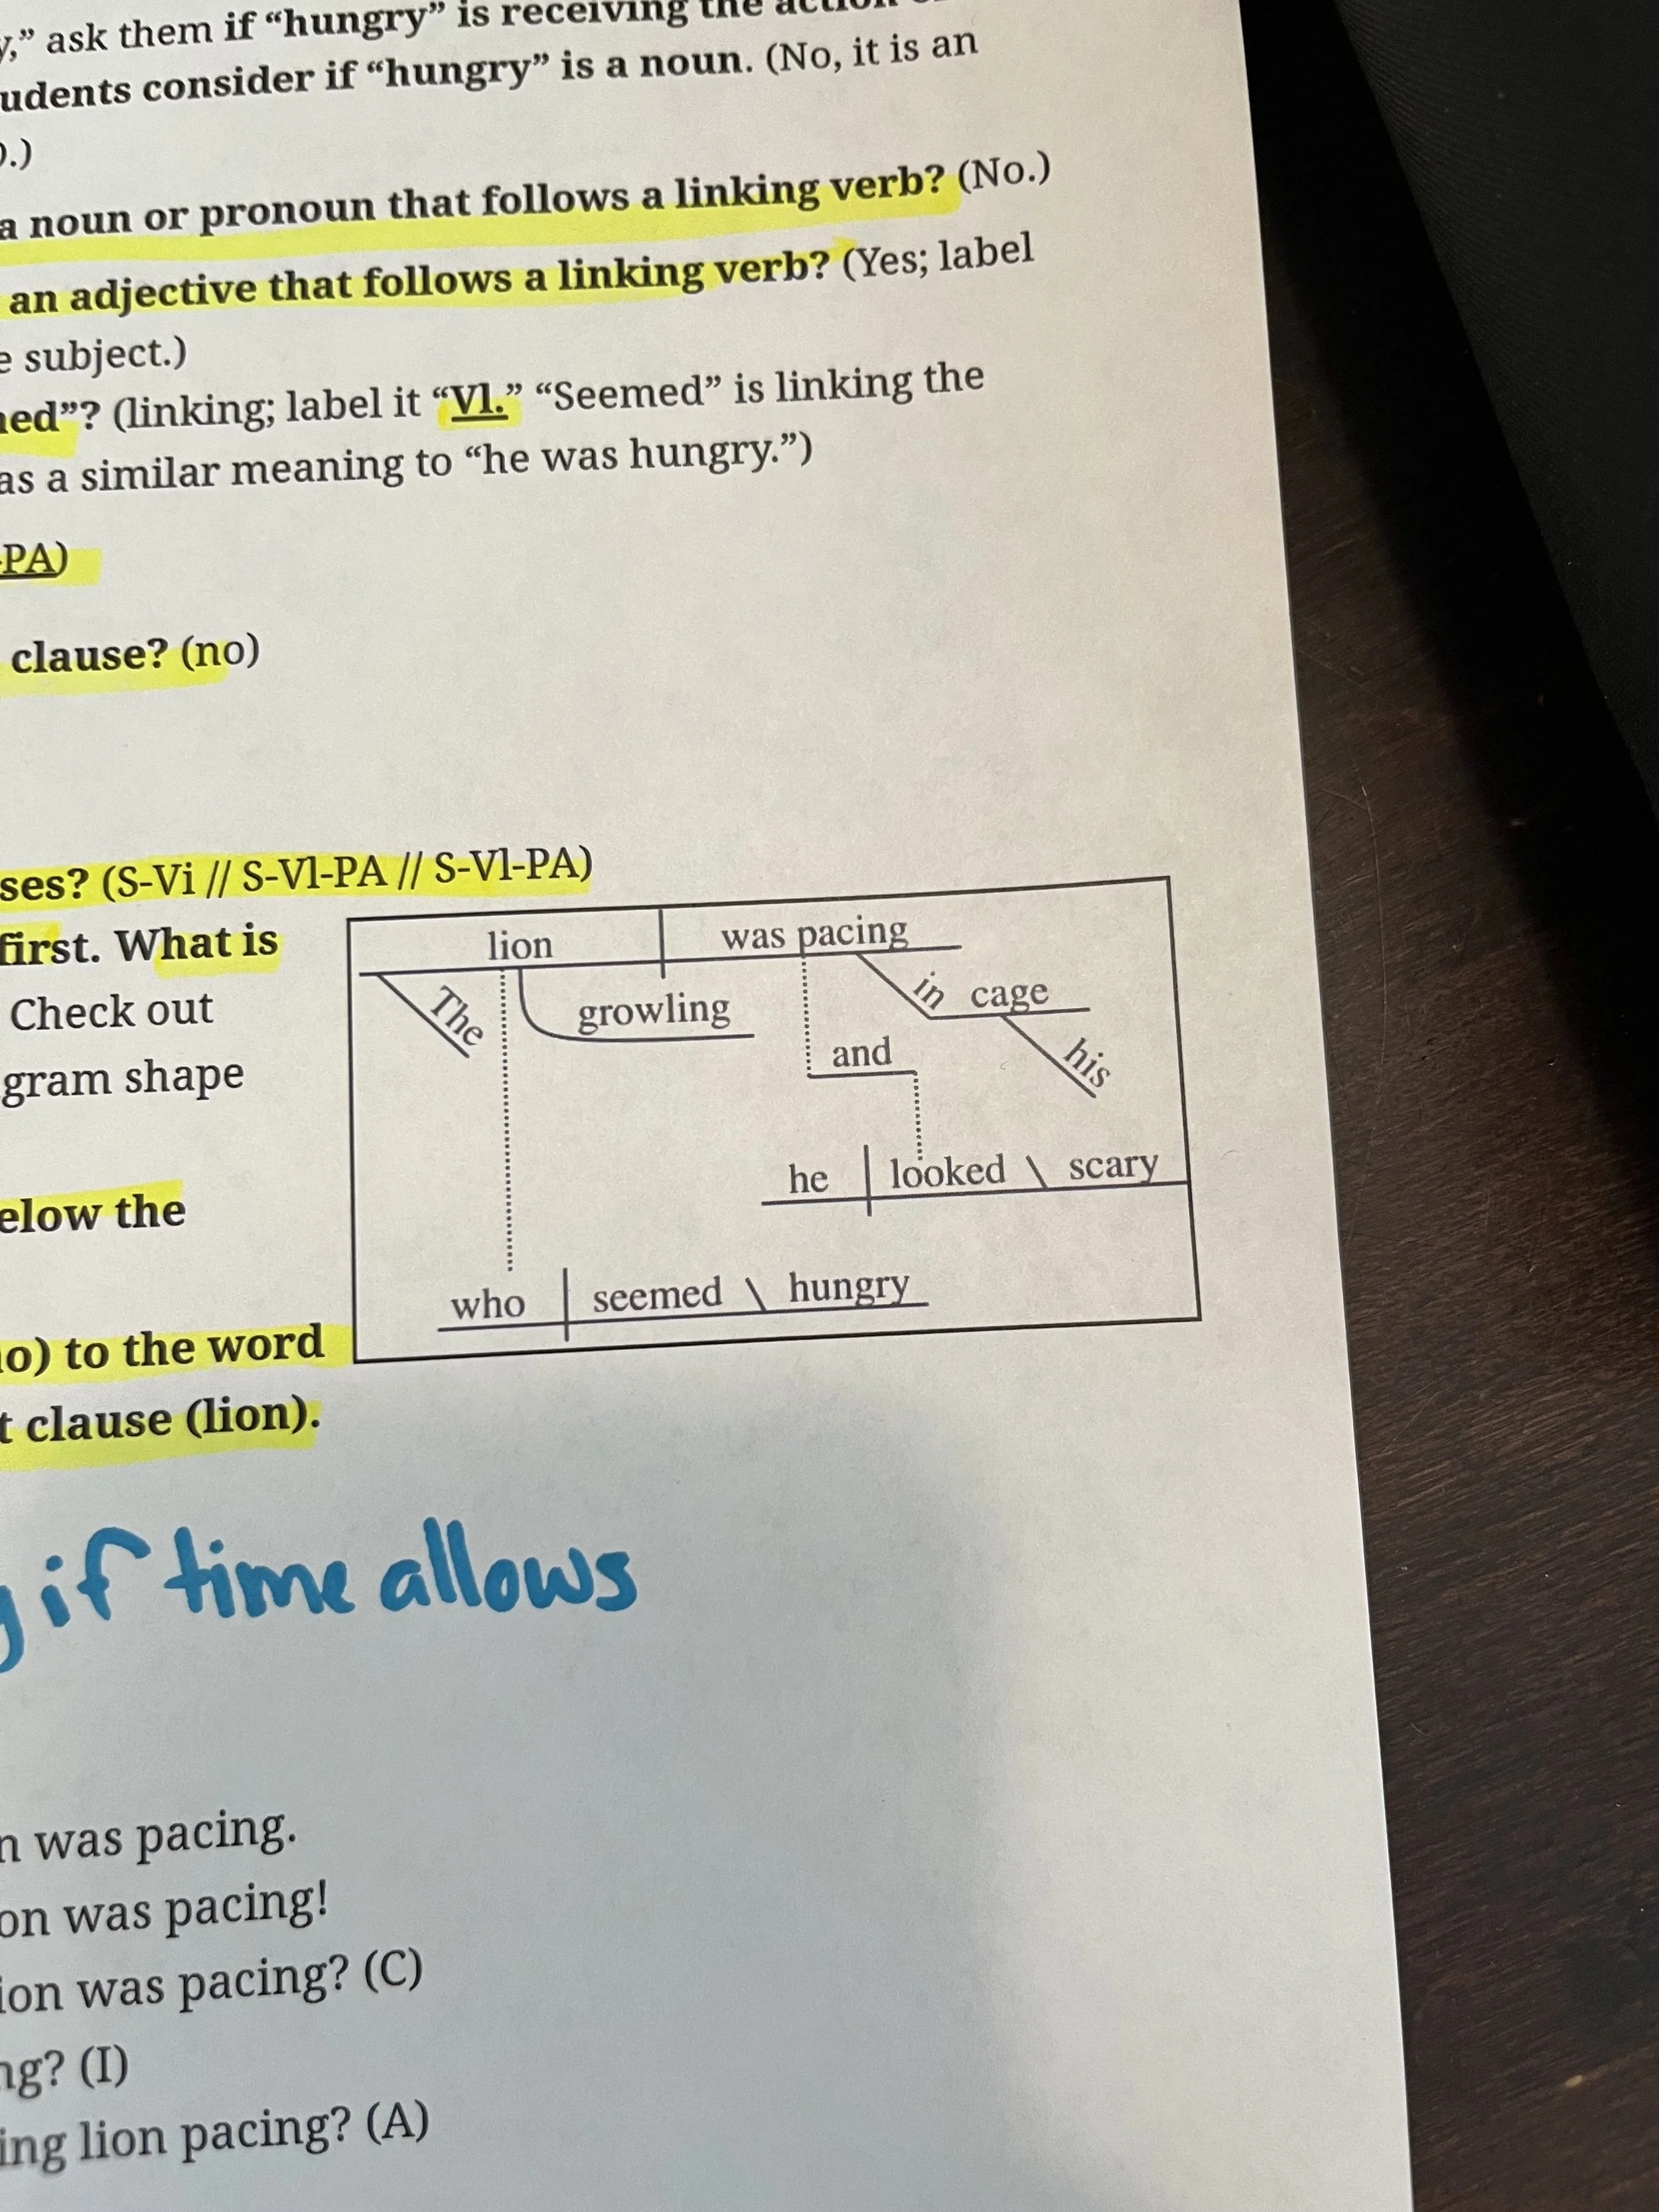 y,” ask them if “hungry” is receiving the action
udents consider if “hungry” is a noun. (No, it is an
).)
a noun or pronoun that follows a linking verb? (No.)
an adjective that follows a linking verb? (Yes; label
e subject.)
ed”? (linking; label it “Vl.” “Seemed” is linking the
as a similar meaning to “he was hungry.”)
-PA)
clause? (no)
ses? (S-Vi // S-Vl-PA // S-Vl-PA)
first. What is
Check out
gram shape
elow the
o) to the word
t clause (lion).
lion was pacing
The growling in cage
and his
he looked \ scary
who seemed \ hungry
if time allows
n was pacing.
on was pacing!
ion was pacing? (C)
ng? (I)
ing lion pacing? (A)